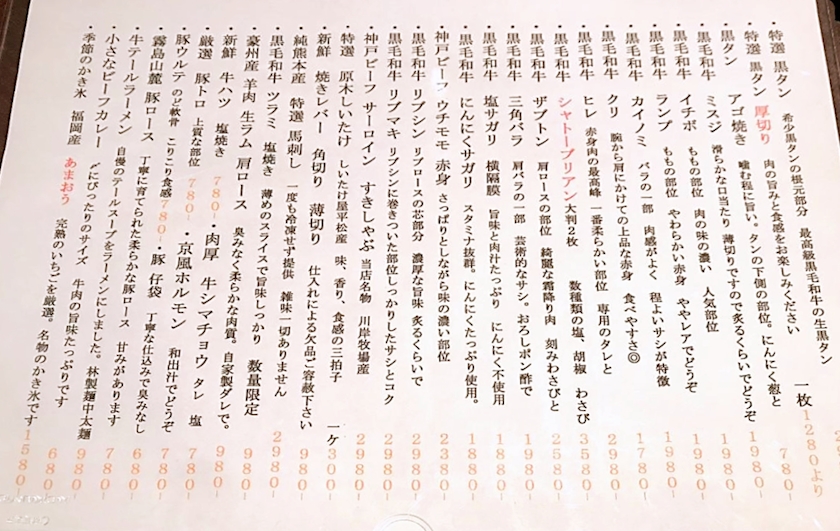 ・特選 黒タン 希少黒タンの根元部分 最高級黒毛和牛の生黒タン
・特選 黒タン 厚切り 肉の旨みと食感をお楽しみください 一枚1280より
・黒タン アゴ焼き 噛む程に旨い。タンの下側の部位。にんにく葱と 780-
・黒毛和牛 ミスジ 滑らかな口当たり 薄切りですので炙るくらいでどうぞ 1980-
・黒毛和牛 イチボ ももの部位 肉の味の濃い 人気部位 1980-
・黒毛和牛 ランプ ももの部位 やわらかい赤身 ややレアでどうぞ 1980-
・黒毛和牛 カイノミ バラの一部 肉感がよく 程よいサシが特徴 1980-
・黒毛和牛 クリ 腕から肩にかけての上品な赤身 食べやすさ◎ 1780-
・黒毛和牛 ヒレ 赤身肉の最高峰 一番柔らかい部位 専用のタレと 2980-
・黒毛和牛 シャトーブリアン大判2枚 数種類の塩、胡椒 わさび 3580-
・黒毛和牛 ザブトン 肩ロースの部位 綺麗な霜降り肉 刻みわさびと 2580-
・黒毛和牛 三角バラ 肩バラの一部 芸術的なサシ。おろしポン酢で 1980-
・黒毛和牛 塩サガリ 横隔膜 旨味と肉汁たっぷり にんにく不使用 1880-
・黒毛和牛 にんにくサガリ スタミナ抜群。にんにくたっぷり使用。 1880-
・神戸ビーフ ウチモモ 赤身 さっぱりとしながら味の濃い部位 2380-
・黒毛和牛 リブシン リブロースの芯部分 濃厚な旨味 炙るくらいで 2980-
・黒毛和牛 リブマキ リブシンに巻きついた部位しっかりしたサシとコク 2980-
・神戸ビーフ サーロイン すきしゃぶ 当店名物 川岸牧場産 2980-
・特選 原木しいたけ しいたけ屋平松産 味、香り、食感の三拍子 一ケ300-
・新鮮 焼きレバー 角切り 薄切り 仕入れによる欠品ご容赦下さい 980-
・純熊本産 特選 馬刺し 一度も冷凍せず提供 雑味一切ありません 2980-
・黒毛和牛 ツラミ 塩焼き 薄めのスライスで旨味しっかり 数量限定 980-
・豪州産 羊肉 生ラム 肩ロース 臭みなく柔らかな肉質。自家製ダレで。 980-
・新鮮 牛ハツ 塩焼き 780- ・肉厚 牛シマチョウ タレ 塩 780-
・厳選 豚トロ 上質な部位 780- ・京風ホルモン 和出汁でどうぞ 780-
・豚ウルテ のど軟骨 こりこり食感 780- ・豚 仔袋 丁寧な仕込みで臭みなし 780-
・霧島山麓 豚ロース 丁寧に育てられた柔らかな豚ロース 甘みがあります 680-
・牛テールラーメン 自慢のテールスープをラーメンにしました。林製麺中太麺 980-
・小さなビーフカレー 〆にぴったりのサイズ 牛肉の旨味たっぷりです 680-
・季節のかき氷 福岡産 あまおう 完熟のいちごを厳選。名物のかき氷です 1580-